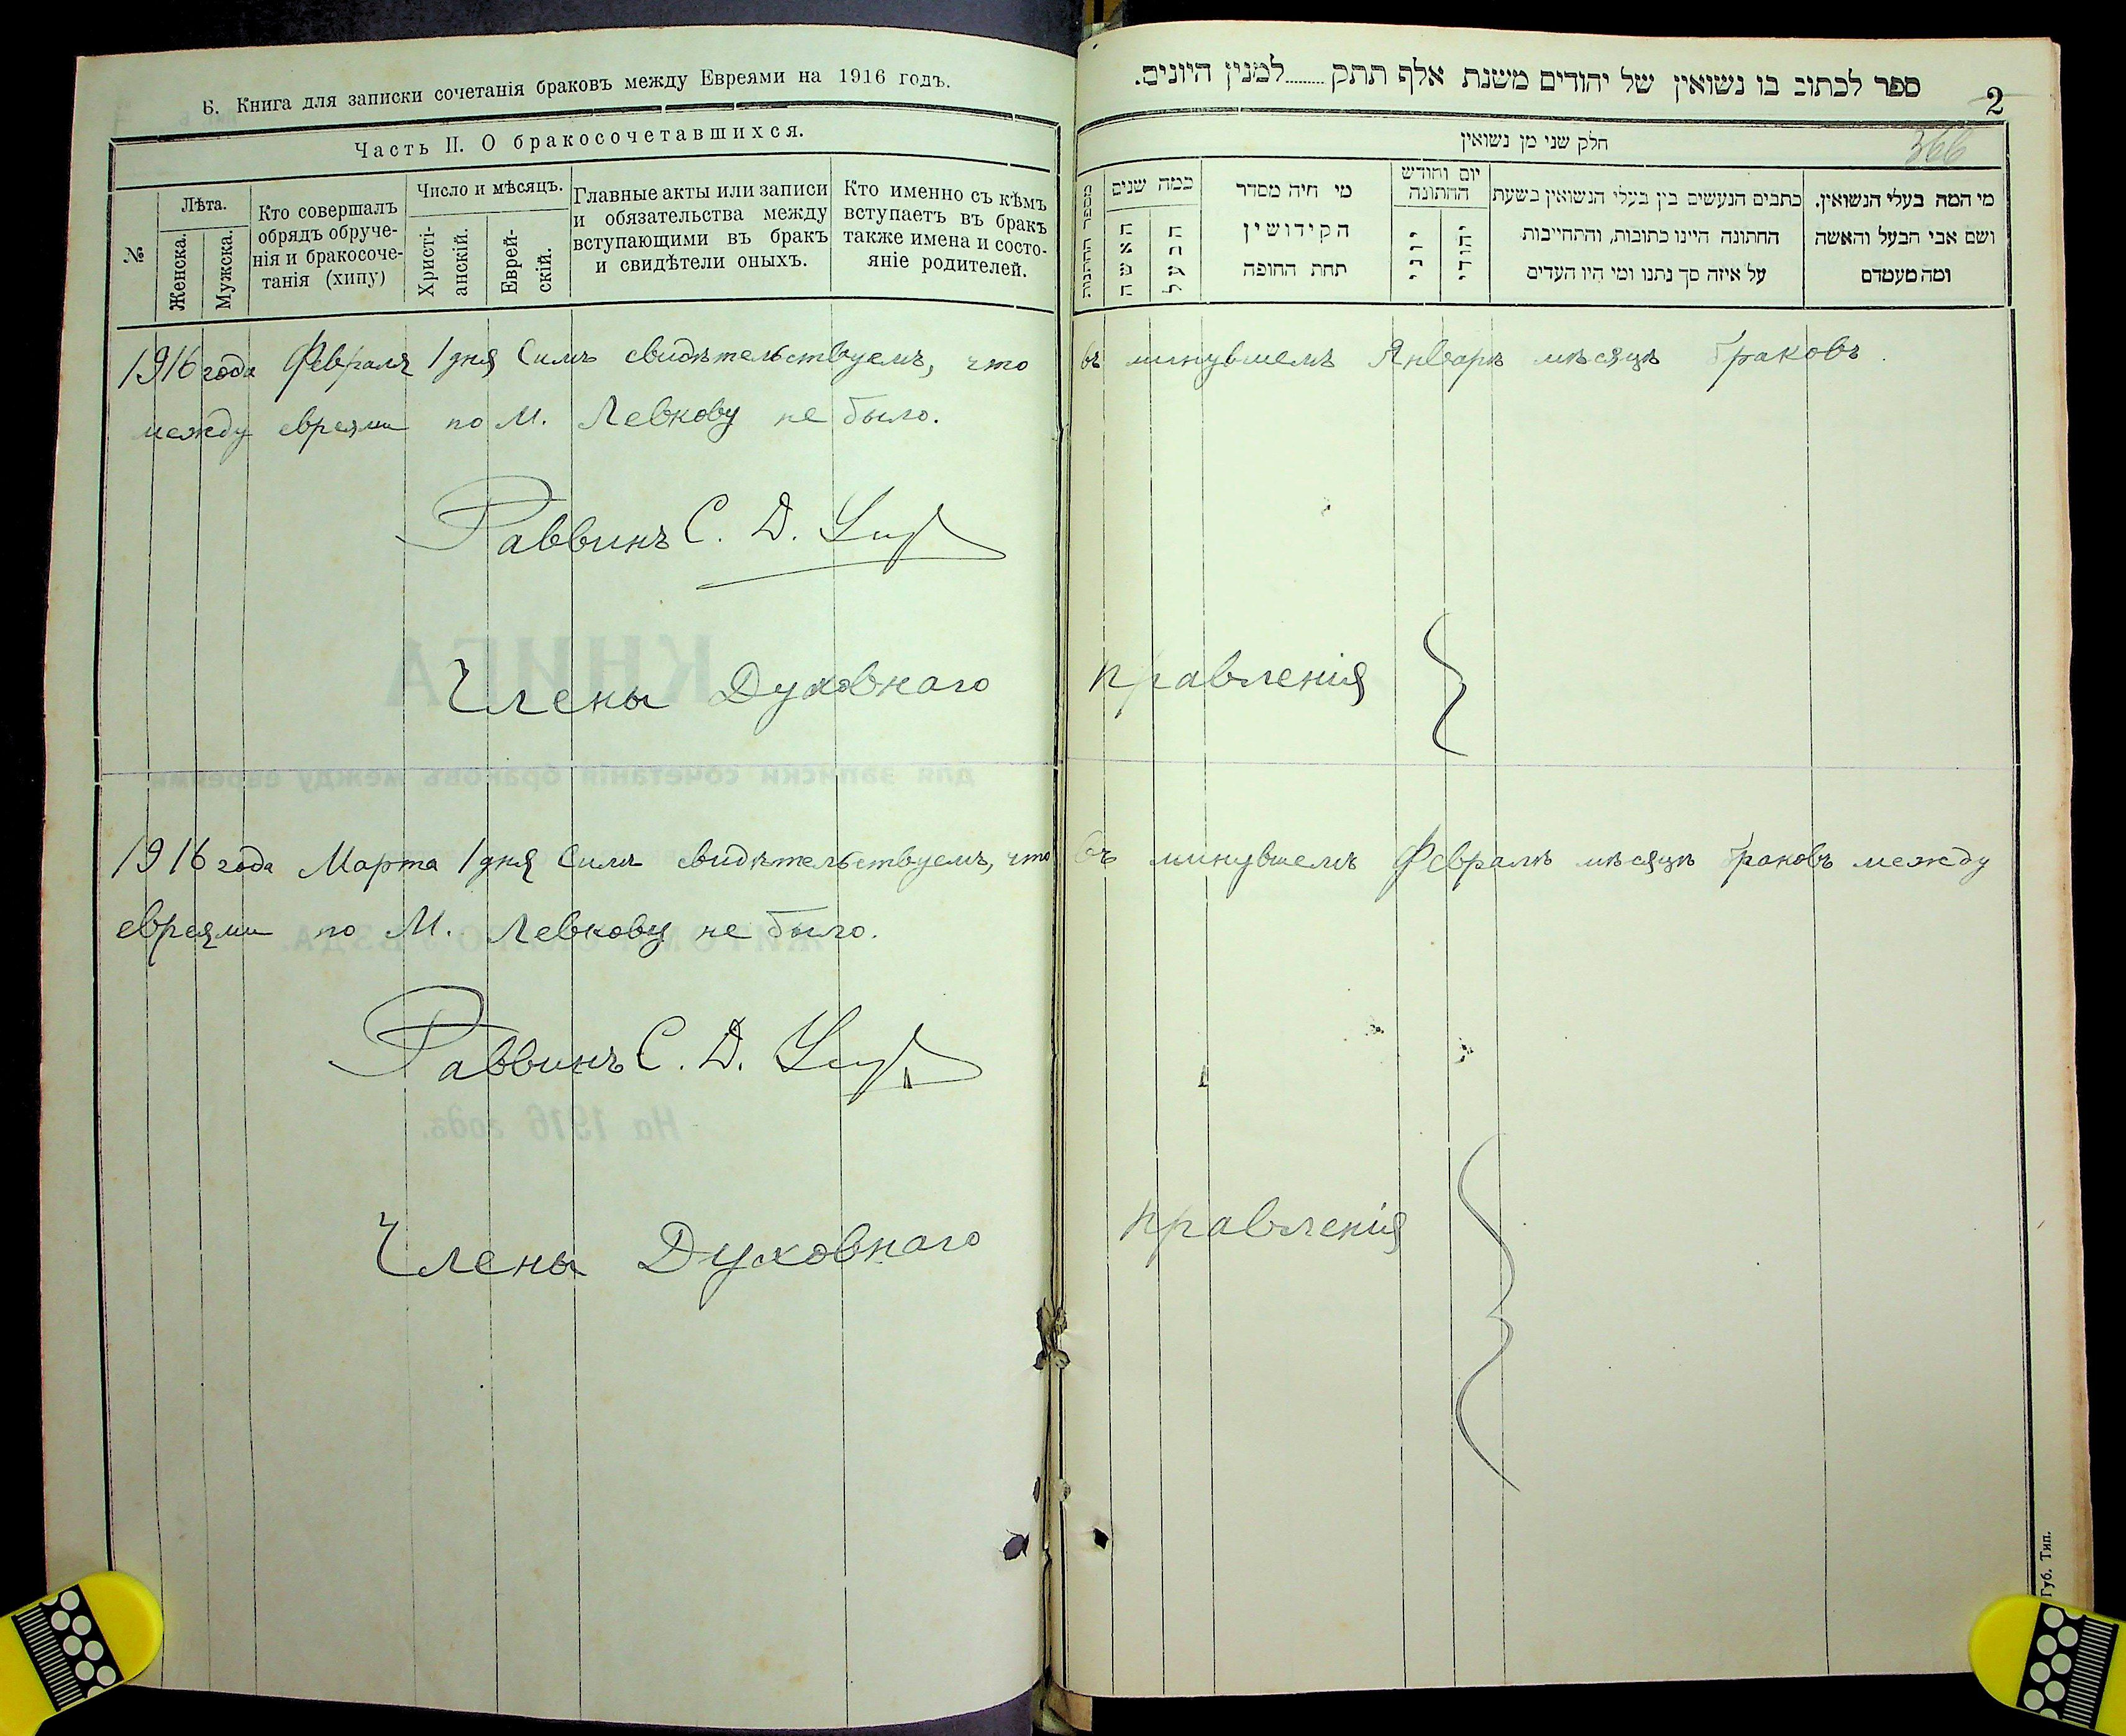 Б. Книга для записки сочетанія браковъ между Евреями на 1916 годъ.
Часть II. О бракосочетавшихся.
№
Лѣта.
Женска.
Мужска.
Кто совершалъ
обрядъ обруче-
нія и бракосоче-
танія (хипу)
Число и мѣсяцъ.
Христі-
анскій.
Еврей-
скій.
Главные акты или записи
и обязательства между
вступающими въ бракъ
и свидѣтели оныхъ.
Кто именно съ кѣмъ
вступаетъ въ бракъ
также имена и состо-
яніе родителей.
ספר לכתוב בו נשואין של יהודים משנת אלף תתק........למנין היונים.
2
366
חלק שני מן נשואין
מי המה בעלי הנשואין.
ושם אבי הבעל והאשה
ומה מעמדם
כתבים הנעשים בין בעלי הנשואין בשעת
החתונה היינו כתובות, והתחייבות
על איזה סך נתנו ומי היו העדים
יום וחודש
החתונה
יהודי
יוני
מי היה מסדר
הקידושין
תחת החופה
כמה שנים
הבעל
האשה
מספר החתונות
1916 года Февраля 1 дня Симъ свидѣтельствуемъ, что въ минувшемъ Январѣ мѣсяцѣ браковъ
между евреями по М. Левкову не было.
Раввинъ С. Д.
Члены Духовнаго правленія
1916 года Марта 1 дня Симъ свидѣтельствуемъ, что въ минувшемъ Февралѣ мѣсяцѣ браковъ между
евреями по М. Левкову не было.
Раввинъ С. Д.
Члены Духовнаго правленія
Губ. Тип.